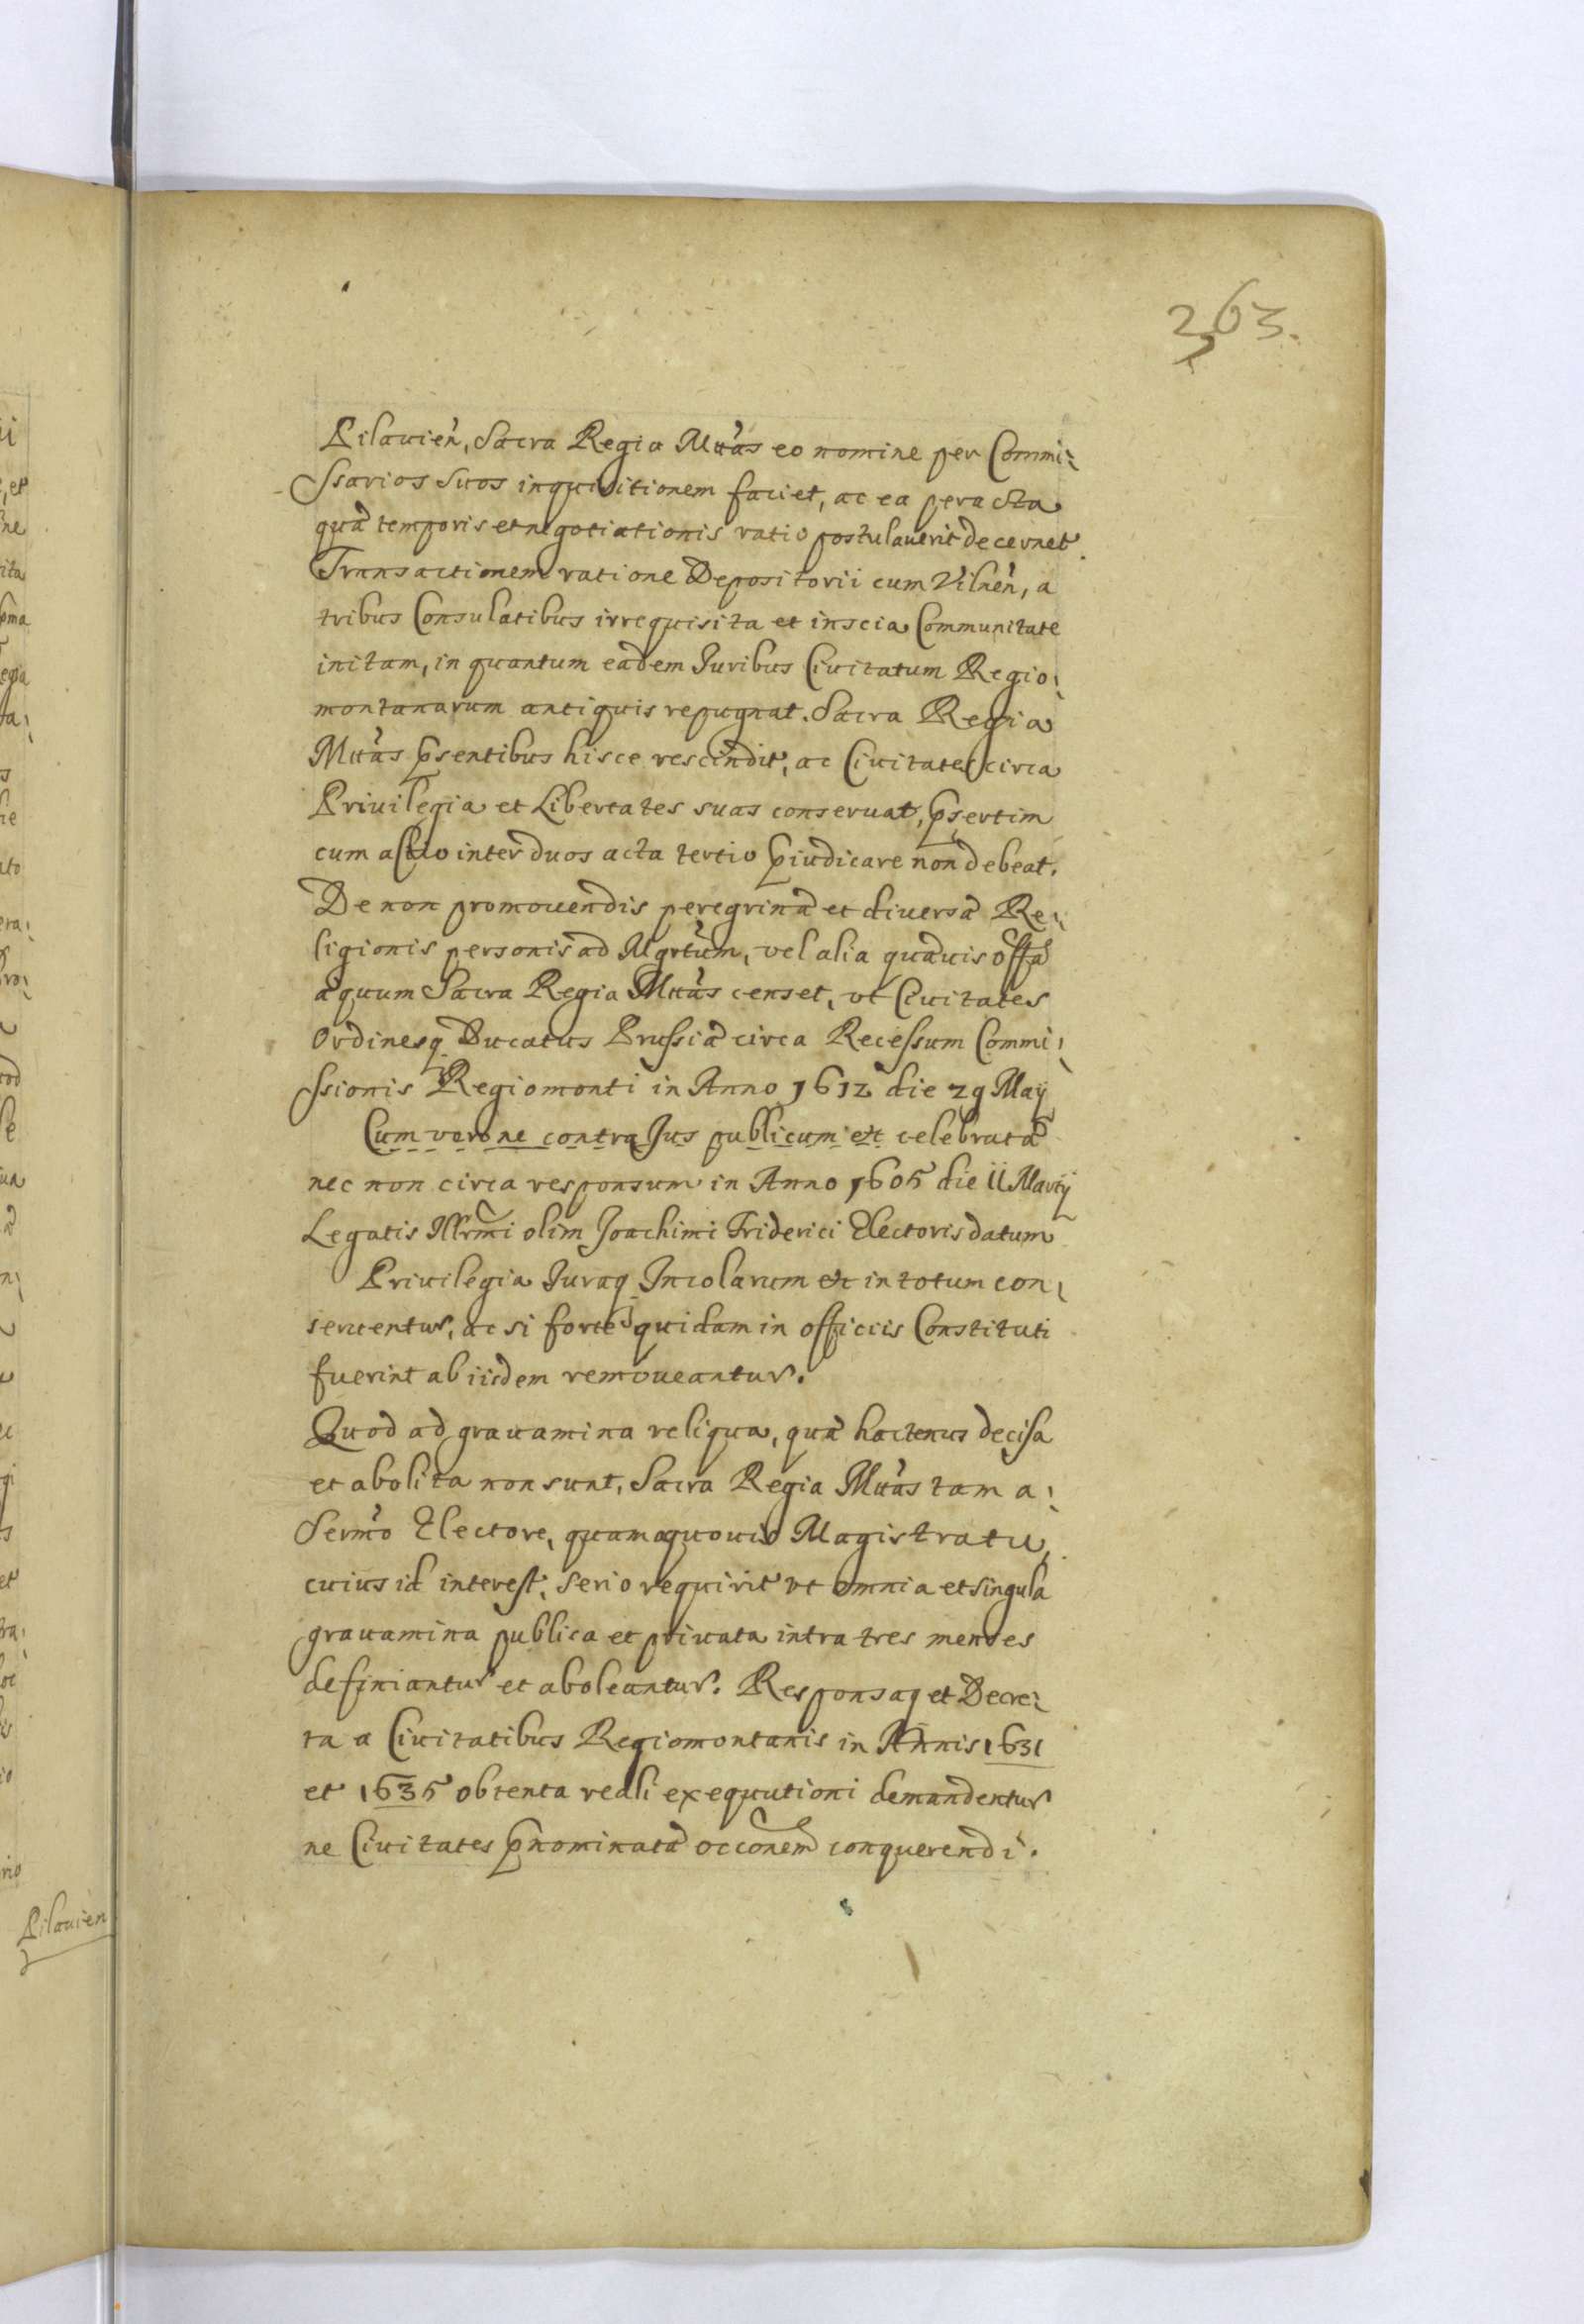 263.
Pilavień, Sacra Regia Mttàs eo nomine per Commi¬
ssarios suos inquisitionem faciet, ac ea peracta
quà temporis et negotiationis ratio postulaverit decernet.
Transactionem ratione Depositorii cum Vilneń, a
tribus Consulatibus irrequisita et inscia Communitate
initam, in quantum eadem Iuribus Civitatum Regio¬
montanarum antiquis repugnat. Sacra Regia
Mttàs psentibus hisce rescindit, ac Civitates circa
Privilegia et Libertates suas conservat, psertim
cum actio inter duos acta tertio piudicare non debeat.
De non promovendis peregrinà et diversà Re¬
ligionis personis ad Mgrtum, vel alia quàvis offà
àquum Sacra Regia Mttàs censet, vt Civitates
Ordinesq Ducatus Prussià circa Recessum Commi¬
ssionis Regiomonti in Anno 1612 die 29 Maÿ
Cum vero ne contra Jus publicum etc celebratà
nec non circa responsum in Anno 1605 die 11 Martÿ
Legatis Illrmi olim Joachimi Friderici Electoris datum
Privilegia Iuraq Incolarum etc in totum con¬
serventur, ac si forte quidam in officiis Constituti
fuerint ab iisdem removeantur.
Quod ad gravamina reliqua, quà hactenus decisa
et abolita non sunt, Sacra Regia Mttàs tam a¬
Sermo Electore, quam a quovis Magistratu,
cuius id interest, serio requirit vt omnia et singula
gravamina publica et privata intra tres menses
definiantur et aboleantur. Responsaq et Decre¬
ta a Civitatibus Regiomontanis in Annis 1631
et 1635 obtenta reali exequutioni demandentur
ne Civitates pnominatà occonem conquerendi.
Pilavień